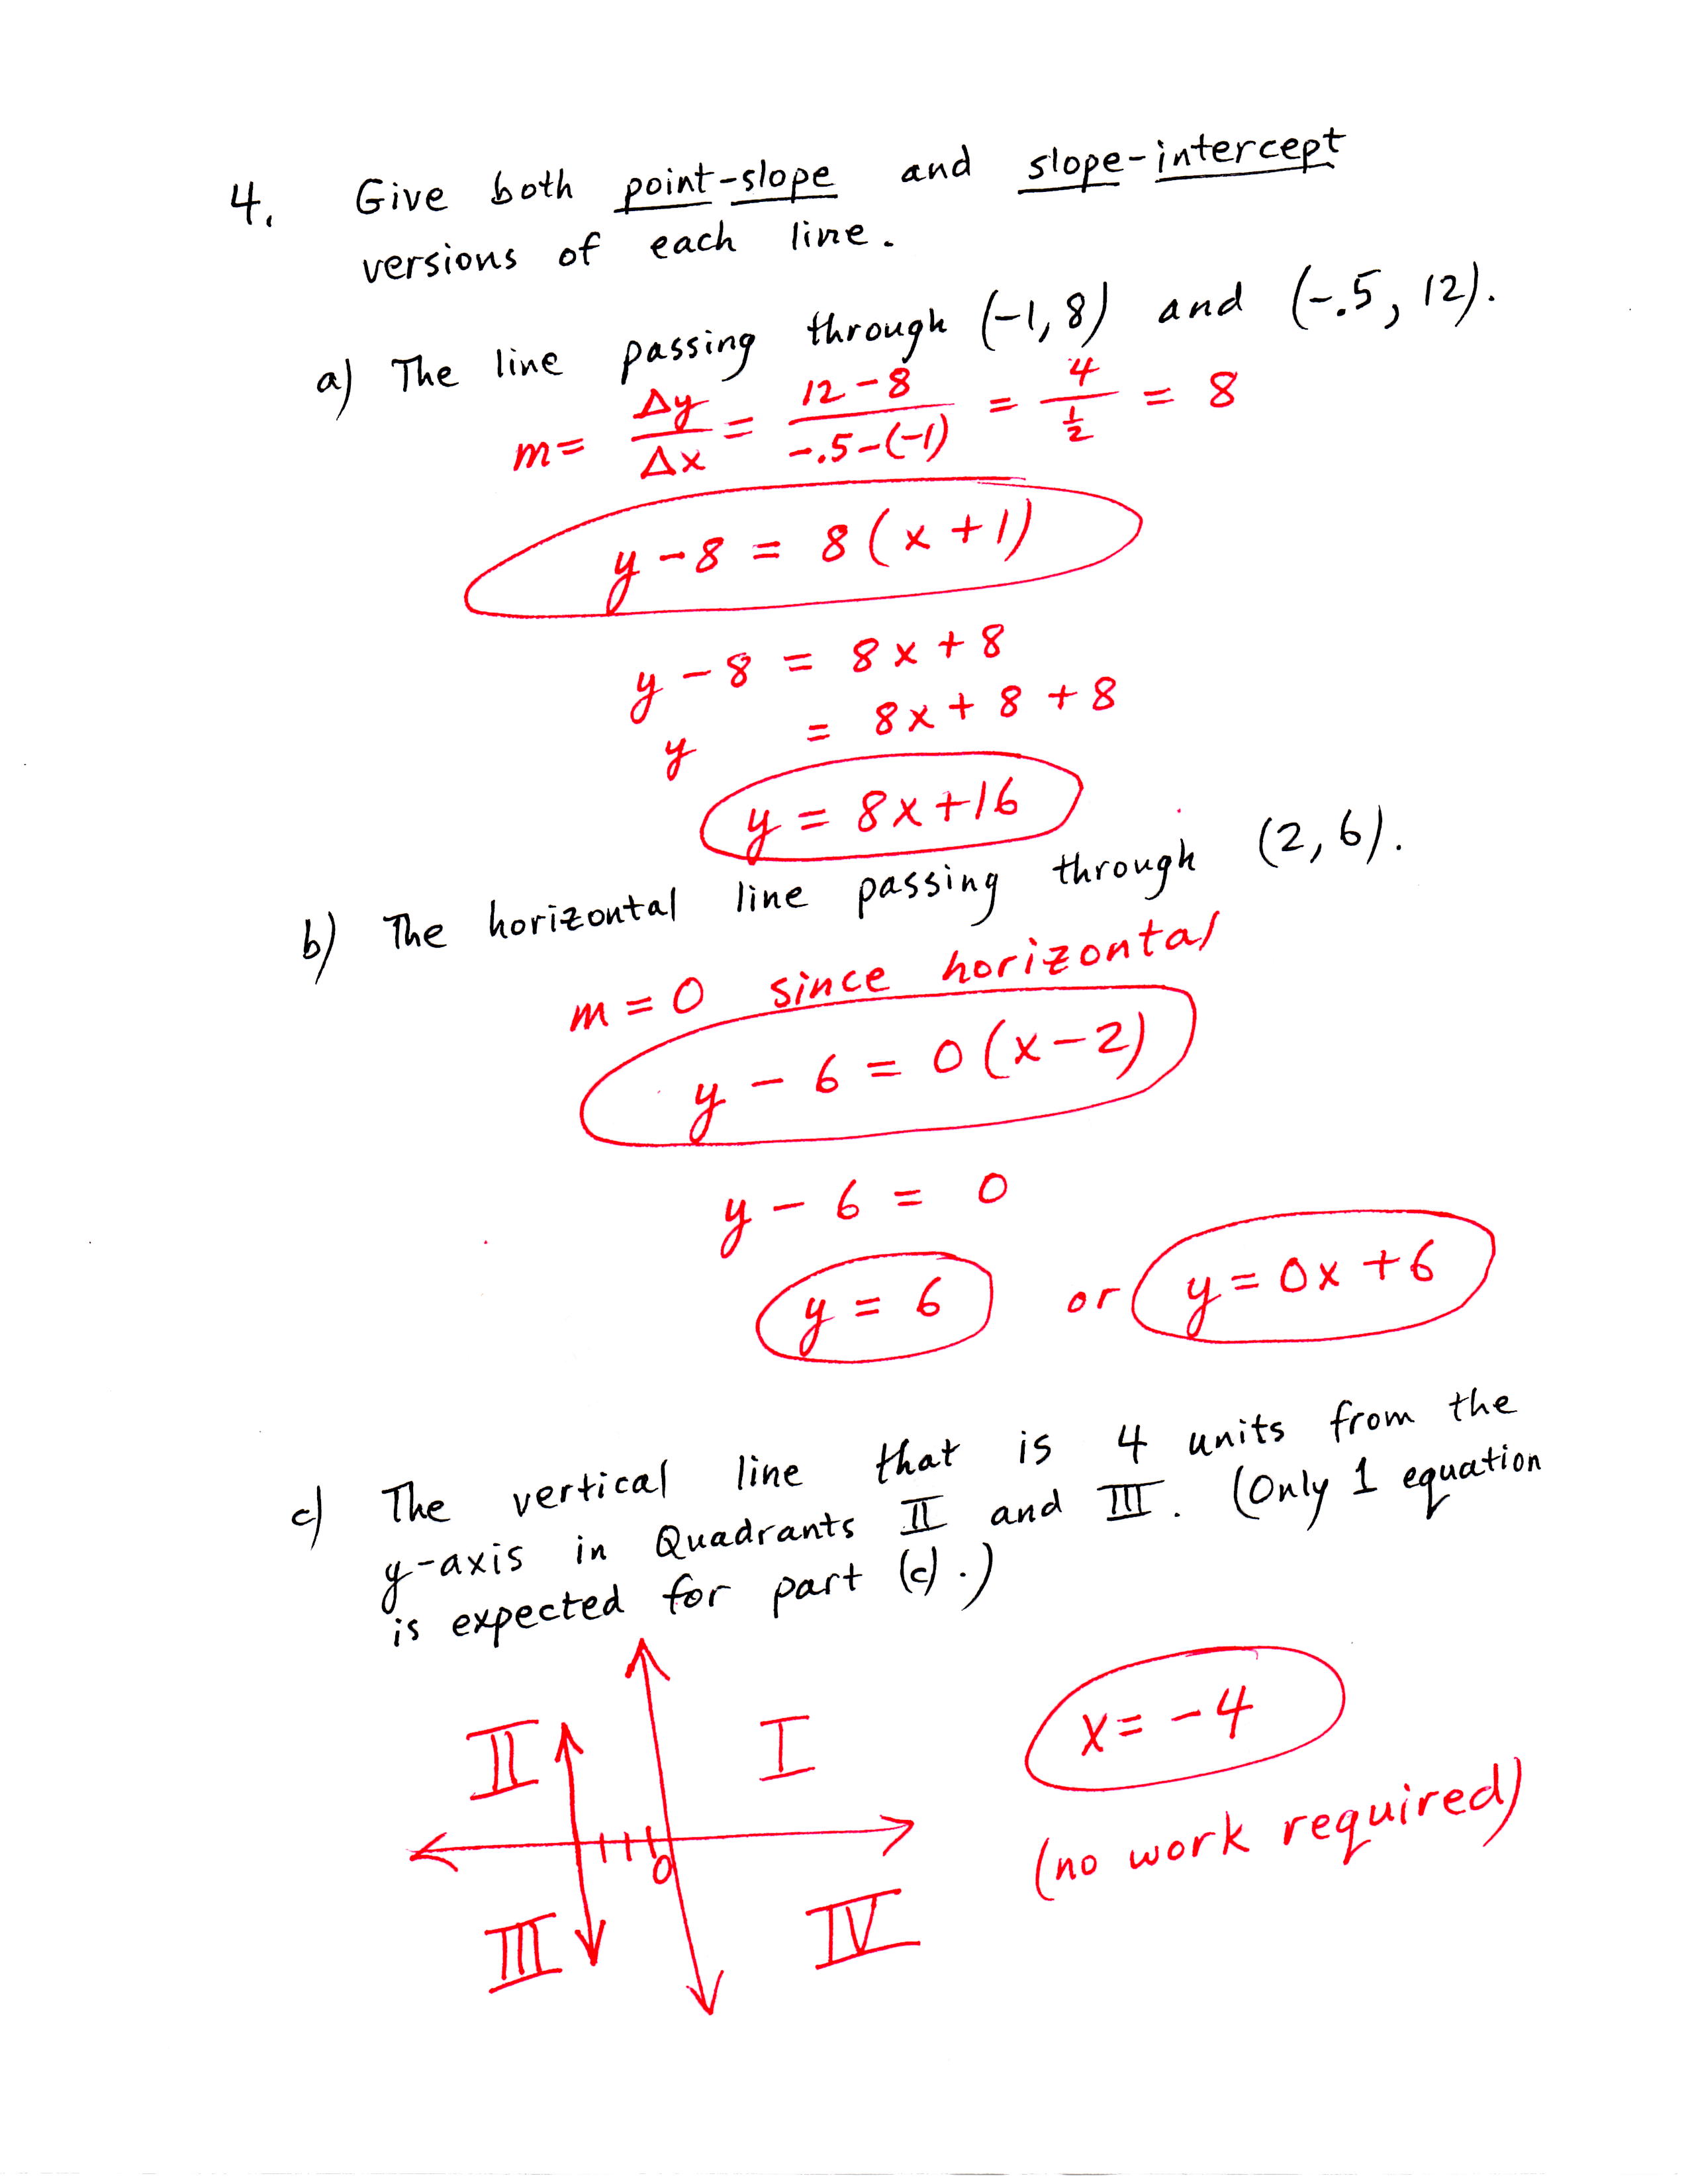 4. Give both point-slope and slope-intercept
versions of each line.
a) The line passing through (-1,8) and (-.5, 12).
m = Δy/Δx = 12-8/-.5-(-1) = 4/½ = 8
y-8 = 8(x+1)
y-8 = 8x+8
y = 8x+8+8
y = 8x+16
b) The horizontal line passing through (2,6).
m=0 since horizontal
y-6 = 0(x-2)
y-6 = 0
y = 6 or y=0x+6
c) The vertical line that is 4 units from the
y-axis in Quadrants II and III. (Only 1 equation
is expected for part (c).)
II I
x=-4
0
(no work required)
III IV